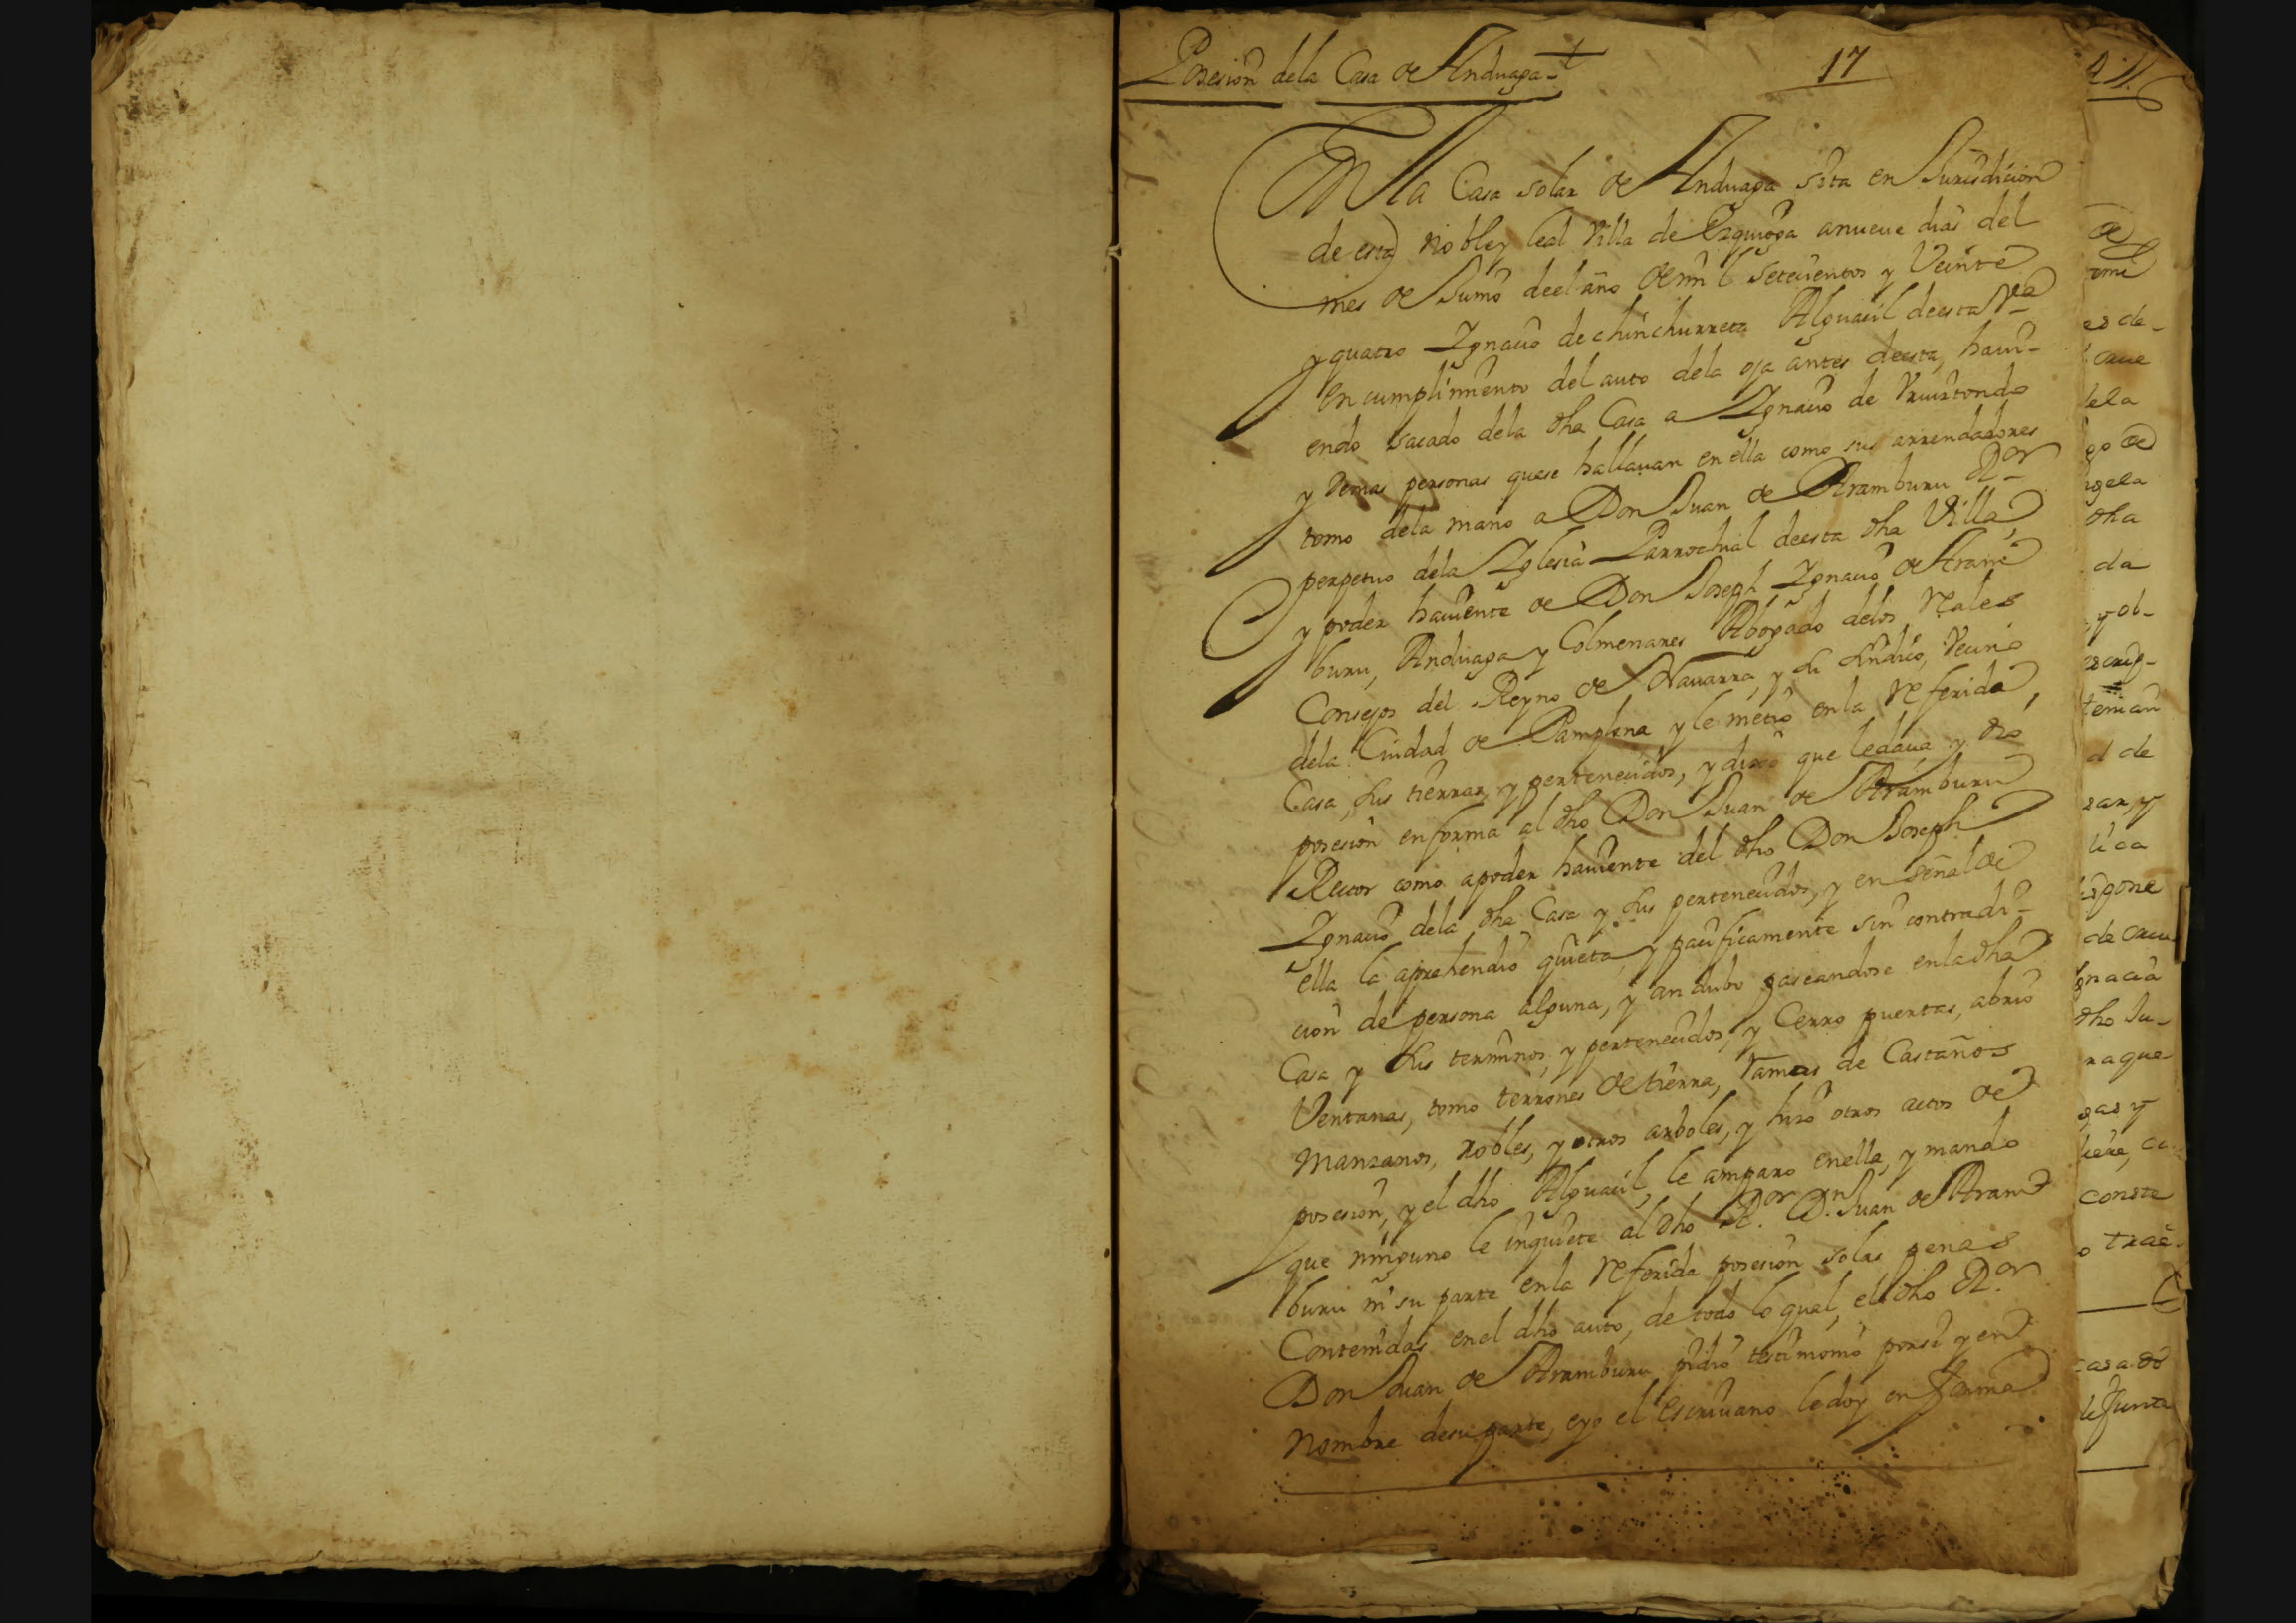 Posesion dela Casa de Anduaga
17
En la Casa solar de Anduaga sita en Jurisdicion
de esta noble y leal Villa de Ezquioga anueve dias del
mes de Junio deel año de mil Setecientos y Veinte
y quatro Ignacio de chinchurreta Alguacil deesta Vª
en cumplimiento del auto dela oja antes deesta, havi-
endo sacado dela dha Casa a Ignacio de
y demas personas quese hallavan en ella como sus arrendadores
tomo dela mano a Don Juan de Aramburu Ror
perpetuo dela Iglesia Parrochial deesta dha Villa,
y poder haviente de Don Joseph Ignacio de Aram
buru, Anduaga y Colmenares Abogado delos Rales
Consejos del Reyno de Navarra, y Su Sindico, Vecino
dela Ciudad de Pamplona y le metio en la Referida
Casa, Sus tierras, y pertenecidos, y dixo que ledava, y dio
posesion en forma al dho Don Juan de Aramburu
Rector como apoder haviente del dho Don Joseph
Ignacio dela dha Casa y Sus pertenecidos, y en señal de
ella la aprehendio quieta, y pacificamente sin contradi-
cion de persona alguna, y andubo paseandose en la dha
Casa y Sus terminos, y pertenecidos, y Cerro puertas, abrio
Ventanas, tomo terrones de tierra, Ramas de Castaños
Manzanos, Robles, y otros arboles, y hizo otros actos de
posesion, y el dho Alguacil, le amparo en ella, y mando
que ninguno le inquiete al dho Ror. Dn. Juan de Aram
buru ni su parte en la Referida posesion solas penas
Contenidas en el dho auto, de todo lo qual, el dho Ror.
Don Juan de Aramburu pidio testimonio porsi y en
Nombre desu parte, eyo el escrivano ledoy en forma